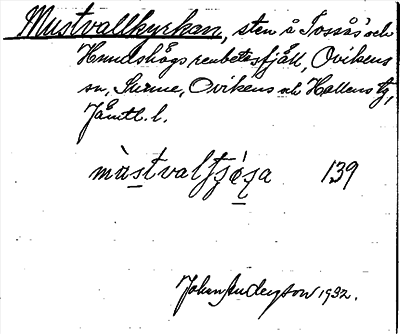 Mustvallkyrkan, sten å Tossås och
Hundshögs renbetesfjäll, Ovikens
sn, Sunne, Ovikens och Hallens tg,
Jämtl. l.
139
Johan Anderson 1932.